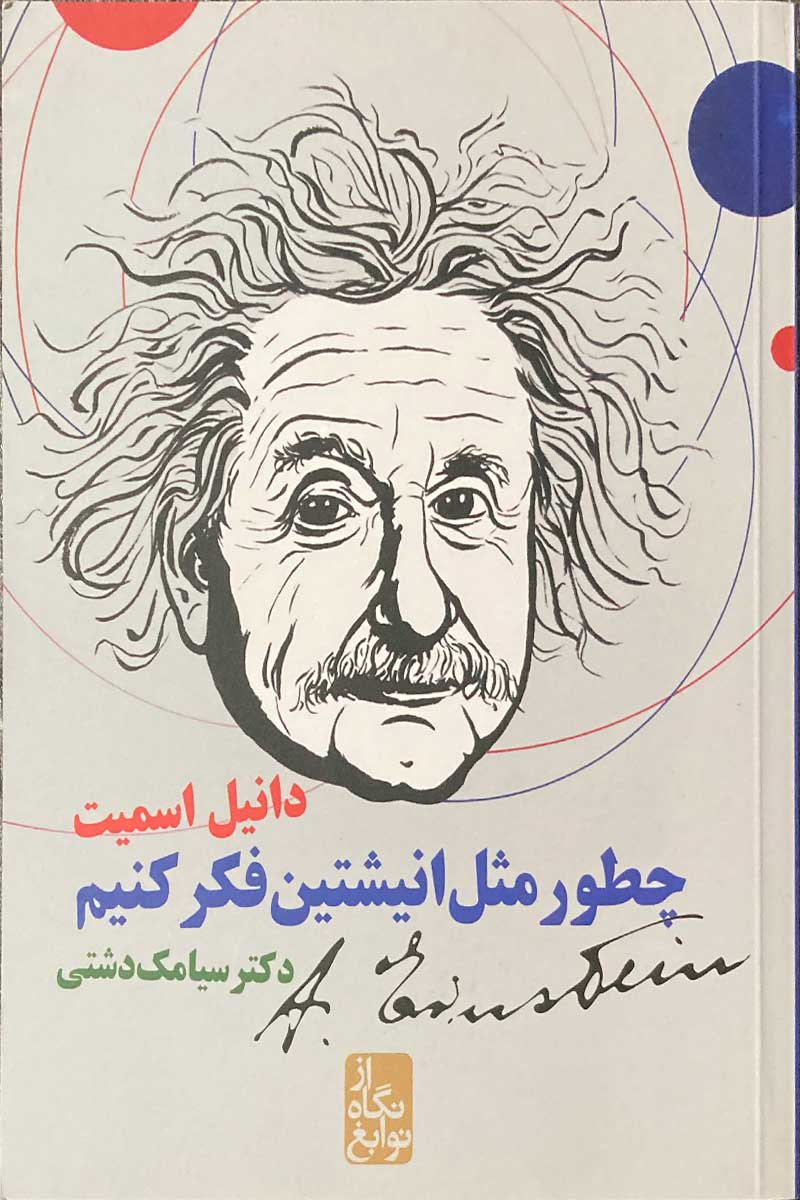 دانیل اسمیت
چطور مثل انیشتین فکر کنیم
دکتر سیامک دشتی
A. Einstein
از
نگاه
نوابغ